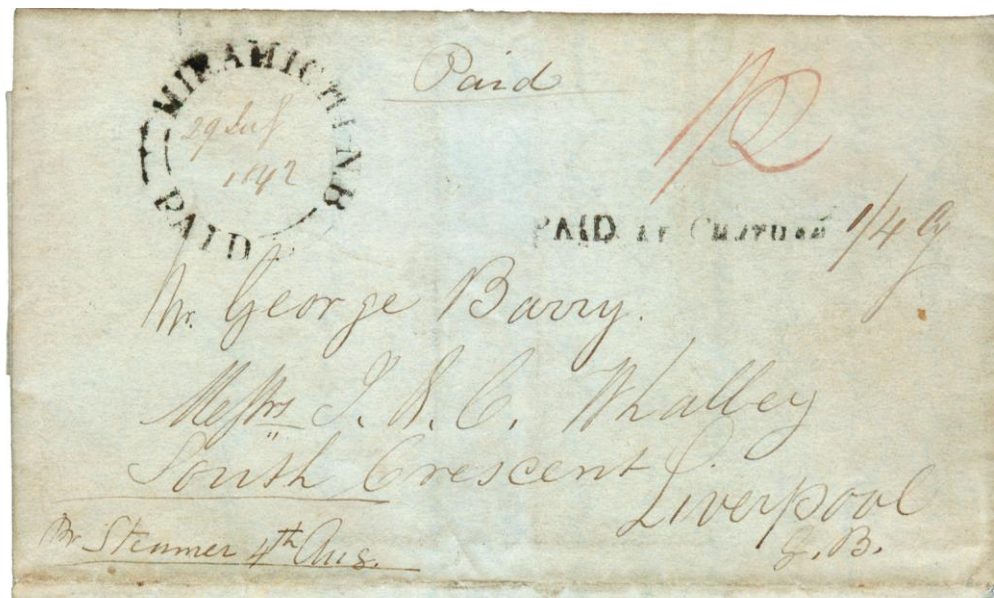 Paid
MIRAMICHI-N.B
29 July
1842
PAID
1/2
PAID AT CHATHAM 1/4 Cy
Mr. George Barry.
Messrs J. & C. Whalley
South Crescent
Liverpool
G.B.
Pr Steamer 4th Aug.